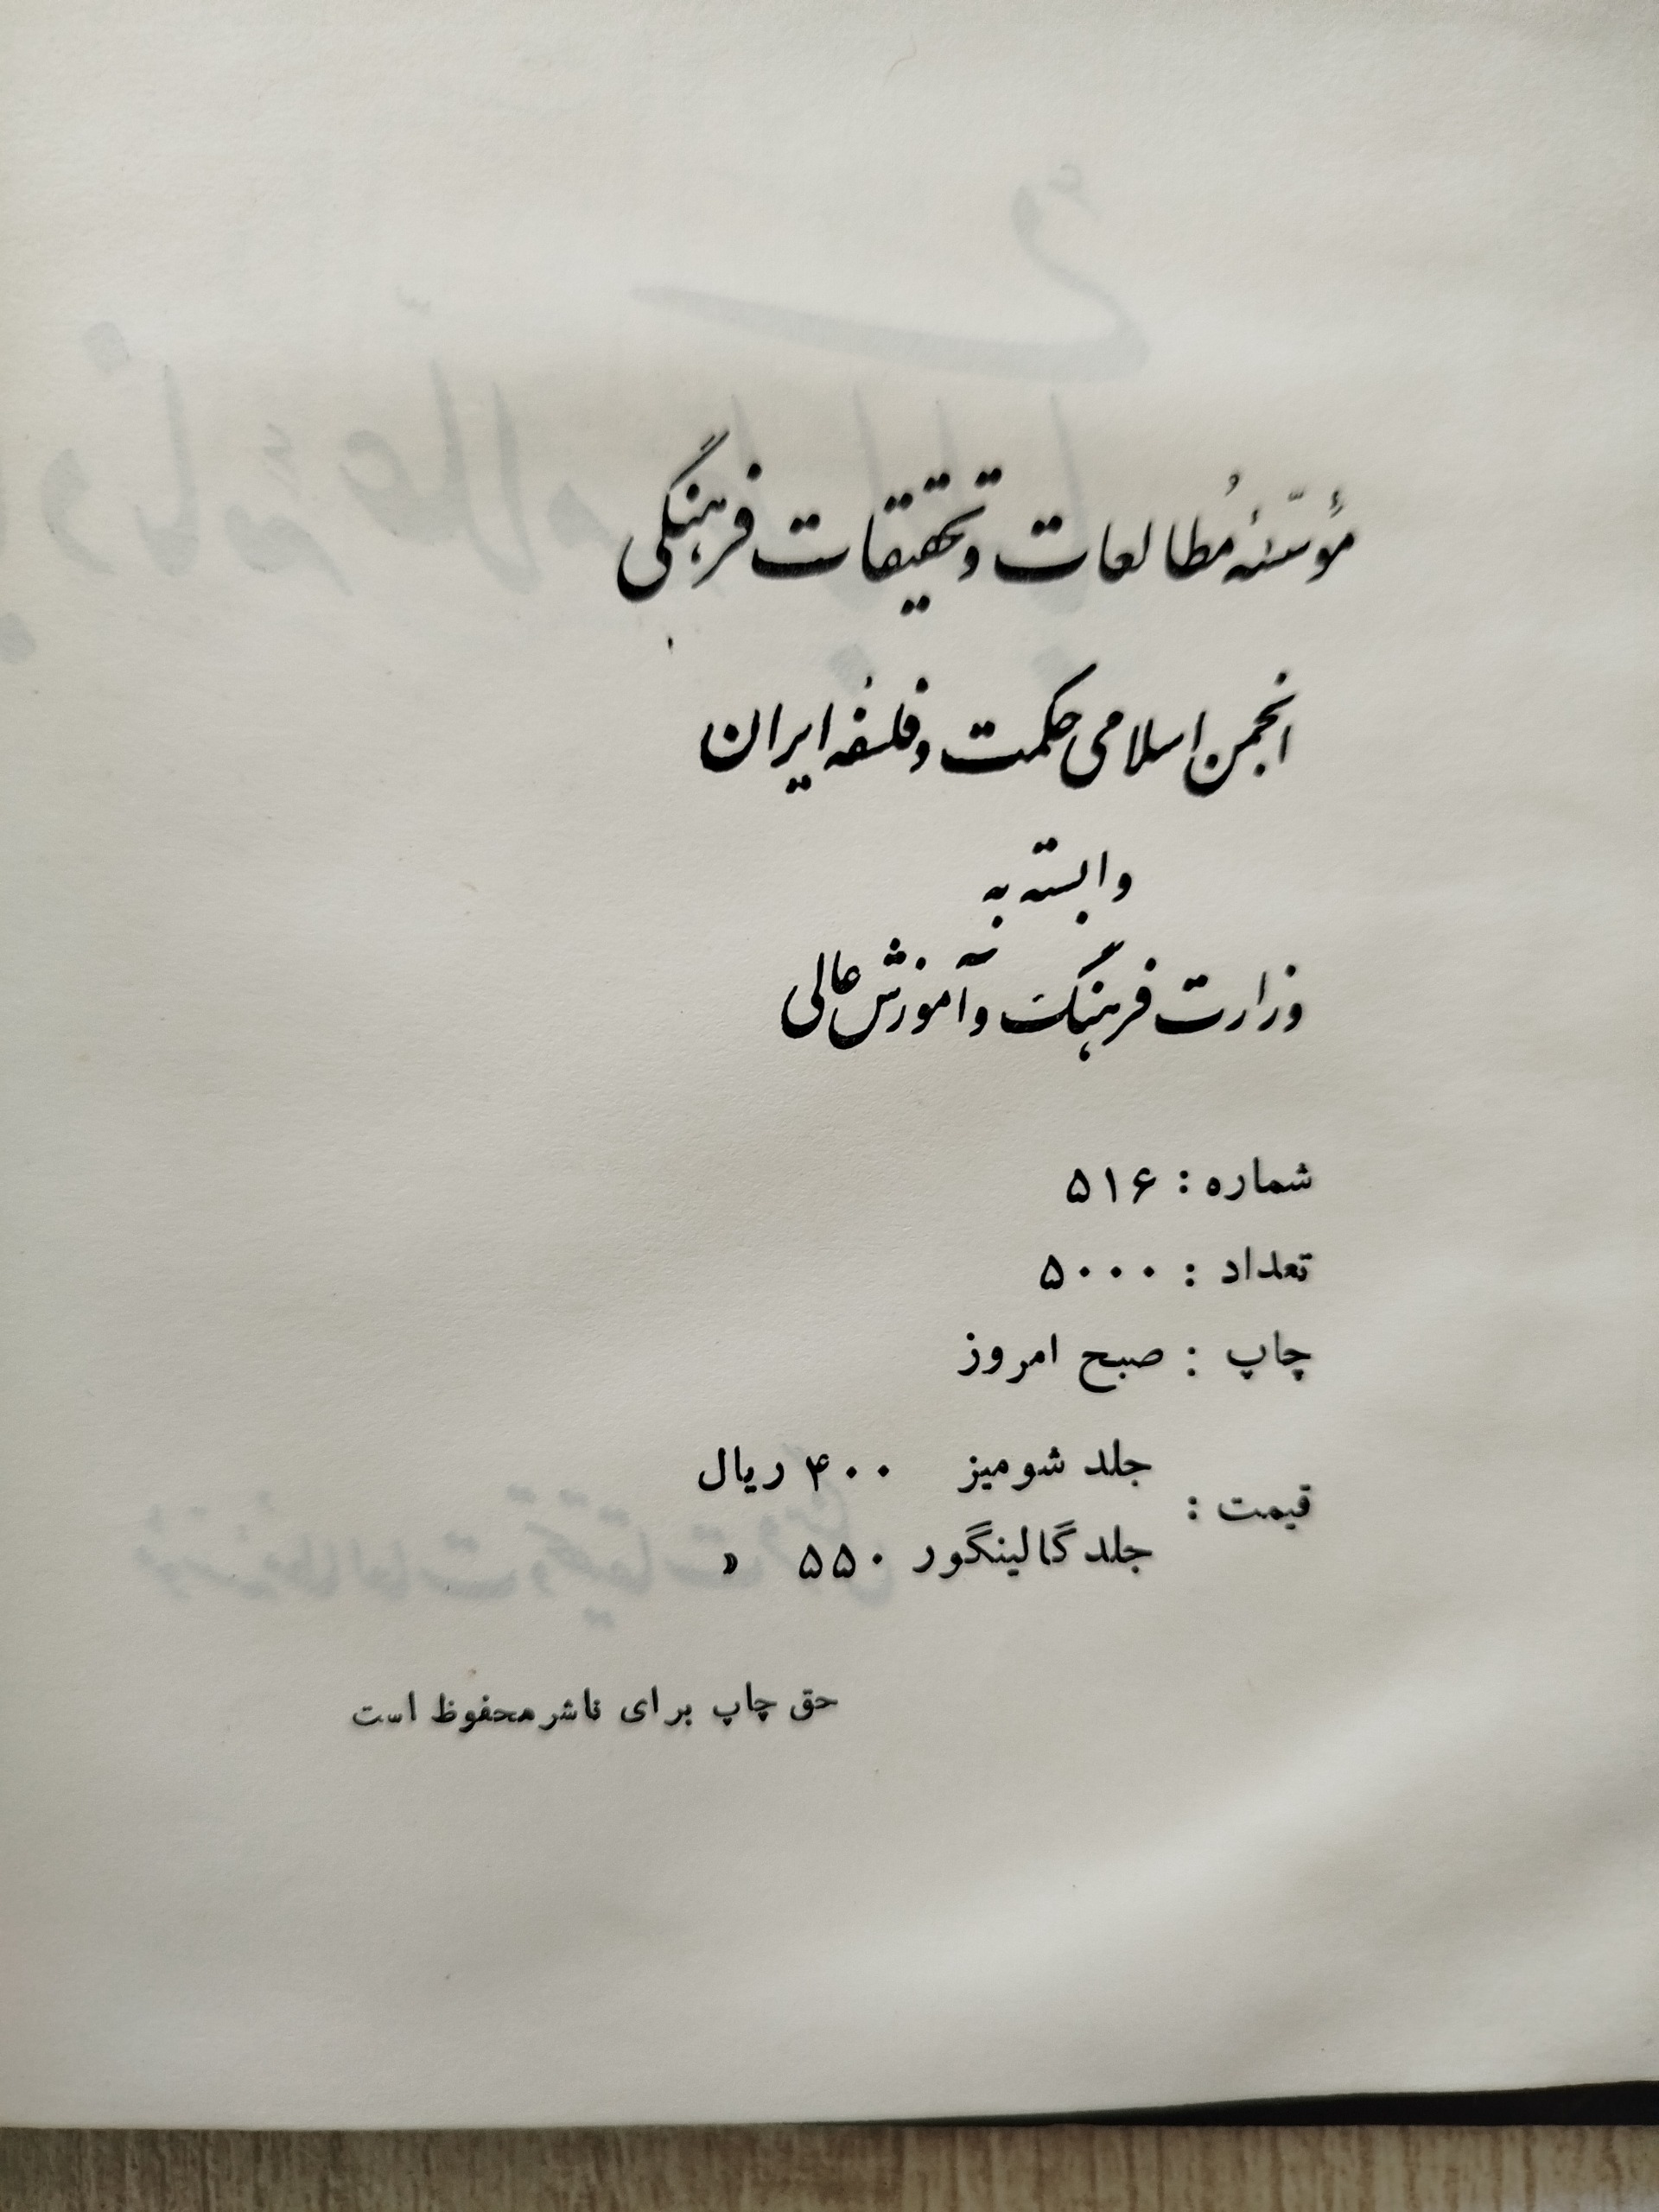 مؤسّسهٔ مُطالعات و تحقیقات فرهنگی
انجمن اسلامی حکمت و فلسفهٔ ایران
وابسته به
وزارت فرهنگ و آموزش عالی
شماره : ۵۱۶
تعداد : ۵۰۰۰
چاپ : صبح امروز
قیمت :
جلد شومیز ۴۰۰ ریال
جلد گالینگور ۵۵۰ »
حق چاپ برای ناشر محفوظ است